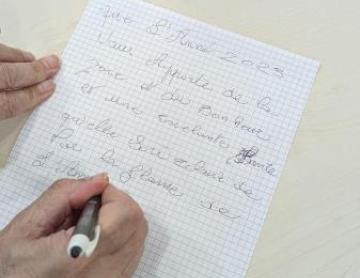 Que L'Année 2023
Vous Apporte de la
Joie et du Bonheur
et une excellente Santé
qu'elle soit eclairé de
Par la flamme de
L'